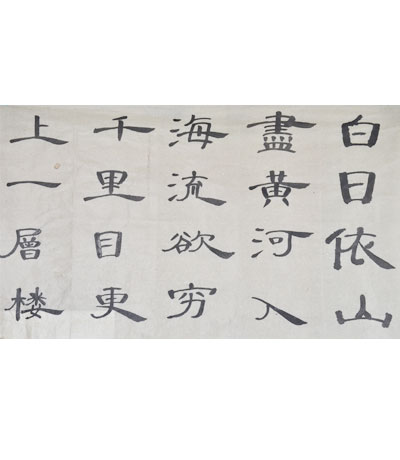 白日依山
盡黃河入
海流欲穷
千里目更
上一層楼